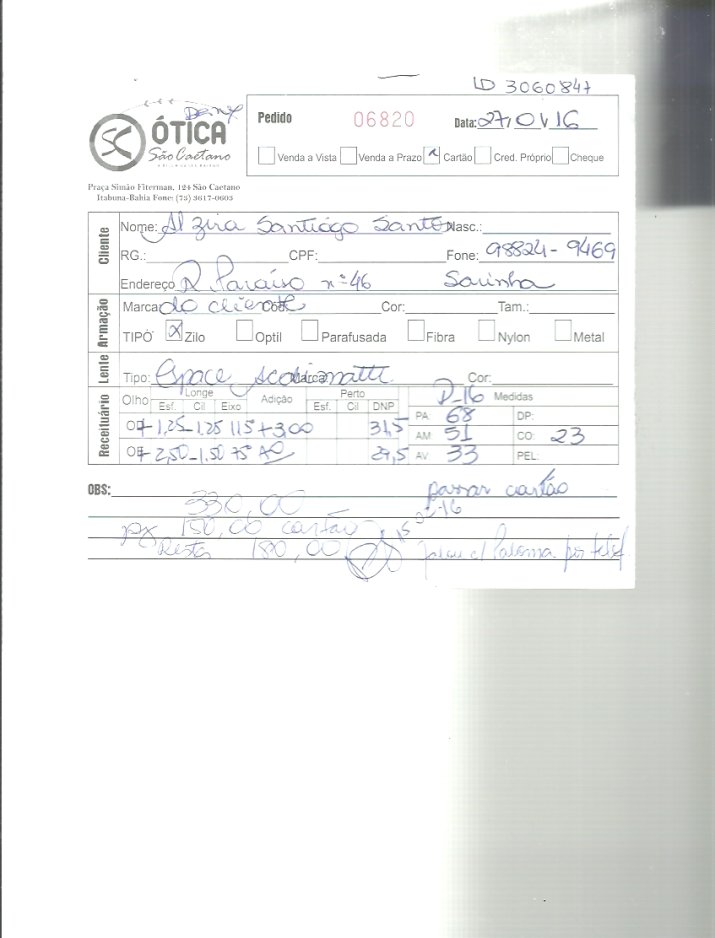 LD 3060847
Pedido 06820 Data: 27/01/16
ÓTICA
São Caetano
Venda a Vista Venda a Prazo x Cartão Cred. Próprio Cheque
Praça Simão Fiterman, 124 São Caetano
Itabuna-Bahia Fone: (73) 3617-0603
Cliente
Nome: Alzira Santiago Santos Nasc.:
RG.: CPF: Fone: 98824-9469
Endereço R Paraíso nº 46 Sarinha
Armação
Marca do cliente Cor: Tam.:
TIPO x Zilo Optil Parafusada Fibra Nylon Metal
Lente
Tipo: Espace Marca: Cor:
Receituário
Olho Longe Adição Perto D-16 Medidas
Esf. Cil Eixo Esf. Cil DNP PA 68 DP:
OD +1,25 -1,25 115 +3,00 31,5 AM 51 CO: 23
OE +2,50 -1,50 75 AO 29,5 AV 33 PEL:
OBS: 330,00 passar cartão
150,00 cartão
Resta 180,00 Paloma por telef